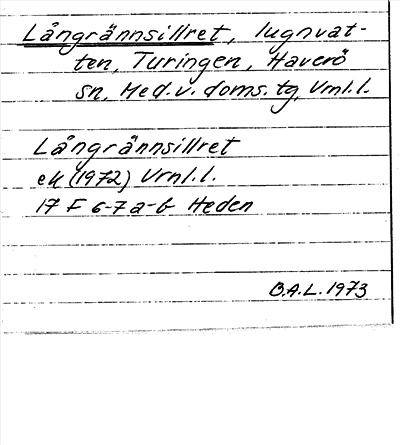 Långrännsillret, lugnvat-
ten, Turingen, Haverö
sn, Med. v. doms. tg, Vml. l.
Långrännsillret
ek (1972) Vrnl. l.
17 F 6-7 a-b Heden
B.A.L. 1973